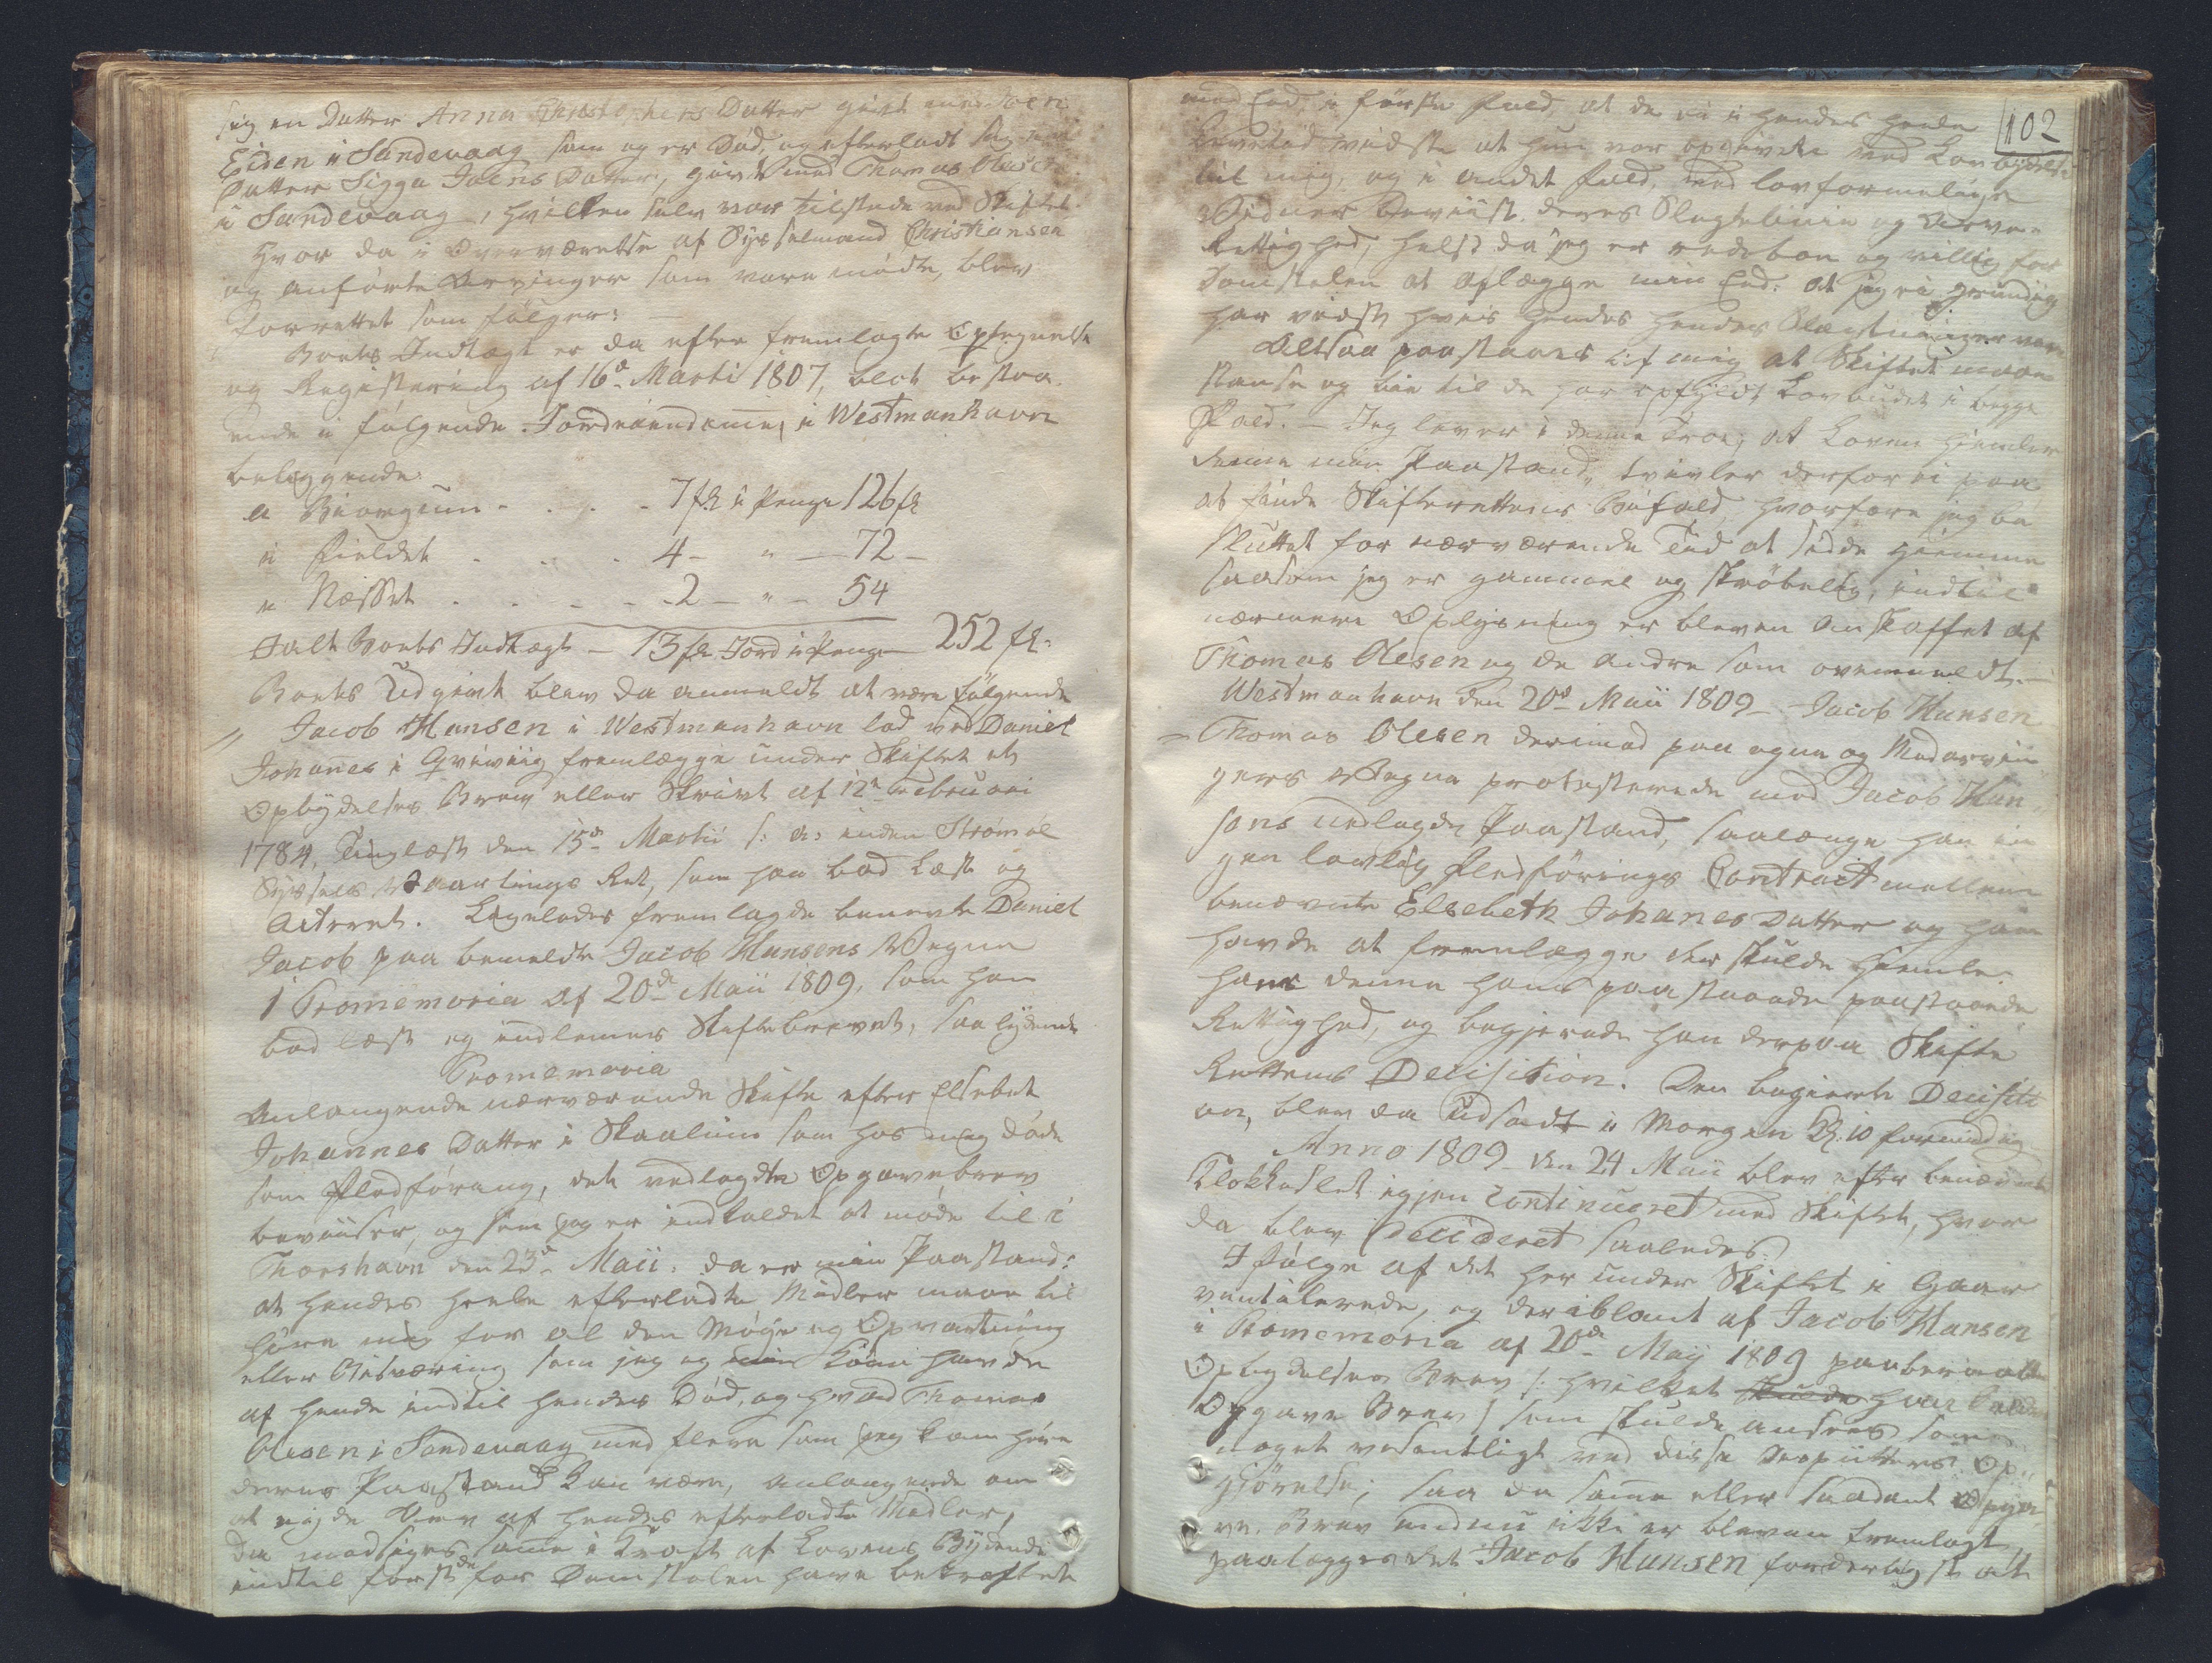 sig en Datter Anna Christophers Datter givt med Joen
Eiden i Sandevaag som og er Död, og efterladt sig en
Datter Sigga Joens Datter, givt med Thomas Olesen
i Sandevaag, hvilken selv var tilstede ved Skiftet
Hvor da i Overværelse af Sysselmand Christiansen
og anförte Arvinger som vare mödte, blev
forrettet som fölger:
Boets Indtægt er da efter fremlagte Optegnelse
og Registering af 16de Marti 1807, blot bestaa-
ende i fölgende Jordeiendomme, i Westmanhavn
beliggende
a Biorgum - . . . - 7 fl i Penge 126 fl
i Fieldet . . . 4 - " - 72 -
i Nesset . . - - 2 - " - 54
Jalt Boets Indtægt - 13 fl. Jord i Penge - 252 fl.
Boets Udgivt blev da anmeldt at være fölgende
" Jacob Hansen i Westmanhavn lod ved Daniel
Johannes i Qviviig fremlægge under Skiftet et
Opbydelses Brev eller Skrivt af 12te Februari
1784, Tinglæst den 15de Martii s: a: inden Strömöe
Syssels Vaartings Ret, som han bad læst og
Acteret. Ligeledes fremlagde benevnte Daniel
Jacob paa bemeldte Jacob Hansens Vegne
1 Promemoria af 20de Maii 1809, som han
bad læst og indlemmes Skiftebrevet, saa lydende
Promemoria
Anlangende nærværende Skifte efter Elsebet
Johannes Datter i Skaalum som hos mig döde
som Fledföring, det vedlagde Opgavebrev
beviiser, og som jeg er indkaldet at möde til i
Thorshavn den 23de Maii, da er min Paastand:
at hendes heele efterladte Midler maae til
höre mig for al den Möye og Opvartning
eller Besværing som jeg og min Kone havde
af hende indtil hendes Död, og hvad Thomas
Olesen i Sandevaag med flere som jeg kan höre
deres Paastand kan være, anlangende om
at nyde Arv af hendes efterladte Midler,
da modsiges samme i Kraft af Lovens Bydende
indtil först de for Domstolen have bekræftet
102
med Eed, i förste fald, at de ei i hendes heele
Levetid vidste at hun var opgiven med Lovbydelse
til mig, og i andet fald, ved lovformelige
Vidner beviist deres Slegtelinie og Arve-
Rettighed, helst da jeg er redebon og villig for
Domstolen at aflægge min Eed: at jeg ei grundig
har vidst hvis hendes hendes Slægtninger vare
Altsaa paastaaes af mig at Skiftet maae
standse og bie til de har opfyldt Lovbudet i begge
Fald. - Jeg lever i denne Troe, at Loven hiemler
denne min Paastand, tvivler derfor ei paa
at finde Skifterettens Bifald, hvorfore jeg be
sluttet for nærværende Tid at sidde hiemme
saasom jeg er gammel og skröbelig, indtil
nærmere Oplysning er bleven anskaffet af
Thomas Olesen og de andre som ovenmeldt. -
Westmanhavn den 20de Maii 1809 - Jacob Hansen
- Thomas Olesen derimod paa egne og Medarvin
gers Vegne protesterede mod Jacob Han,
sens nedlagde Paastand, saalænge han in
gen lovlig Fledförings Contract mellem
benævnte Elsebeth Johanes Datter og ham
havde at fremlægge der skulde hiemle
ham denne hans paastaaede paastaaede
Rettighed, og begjerede han derpaa Skifte
Rettens Decisition. Den begierte Decisiti
on, blev da Udsadt i Morgen Kl. 10 formiddag
Anno 1809 den 24 Maii blev efter benævnte
Klokkeslet igjen Continueret med Skiftet, hvor
da blev Decideret saaledes:
I Fölge af det her under Skiftet i Gaar
ventilerede, og deriblant af Jacob Hansen
i Promemoria af 20de Maij 1809 paaberaabte
Opbydelses Brev /: hvilket skulde han kalder
Opgave Brev / som skulde ansees som
noget væsentligt ved disse Dispütters Op-
hjörelse, saa da samme eller saadant Opga-
ve Brev endnu ikke er bleven fremlagt,
paalægges det Jacob Hansen forderligst at